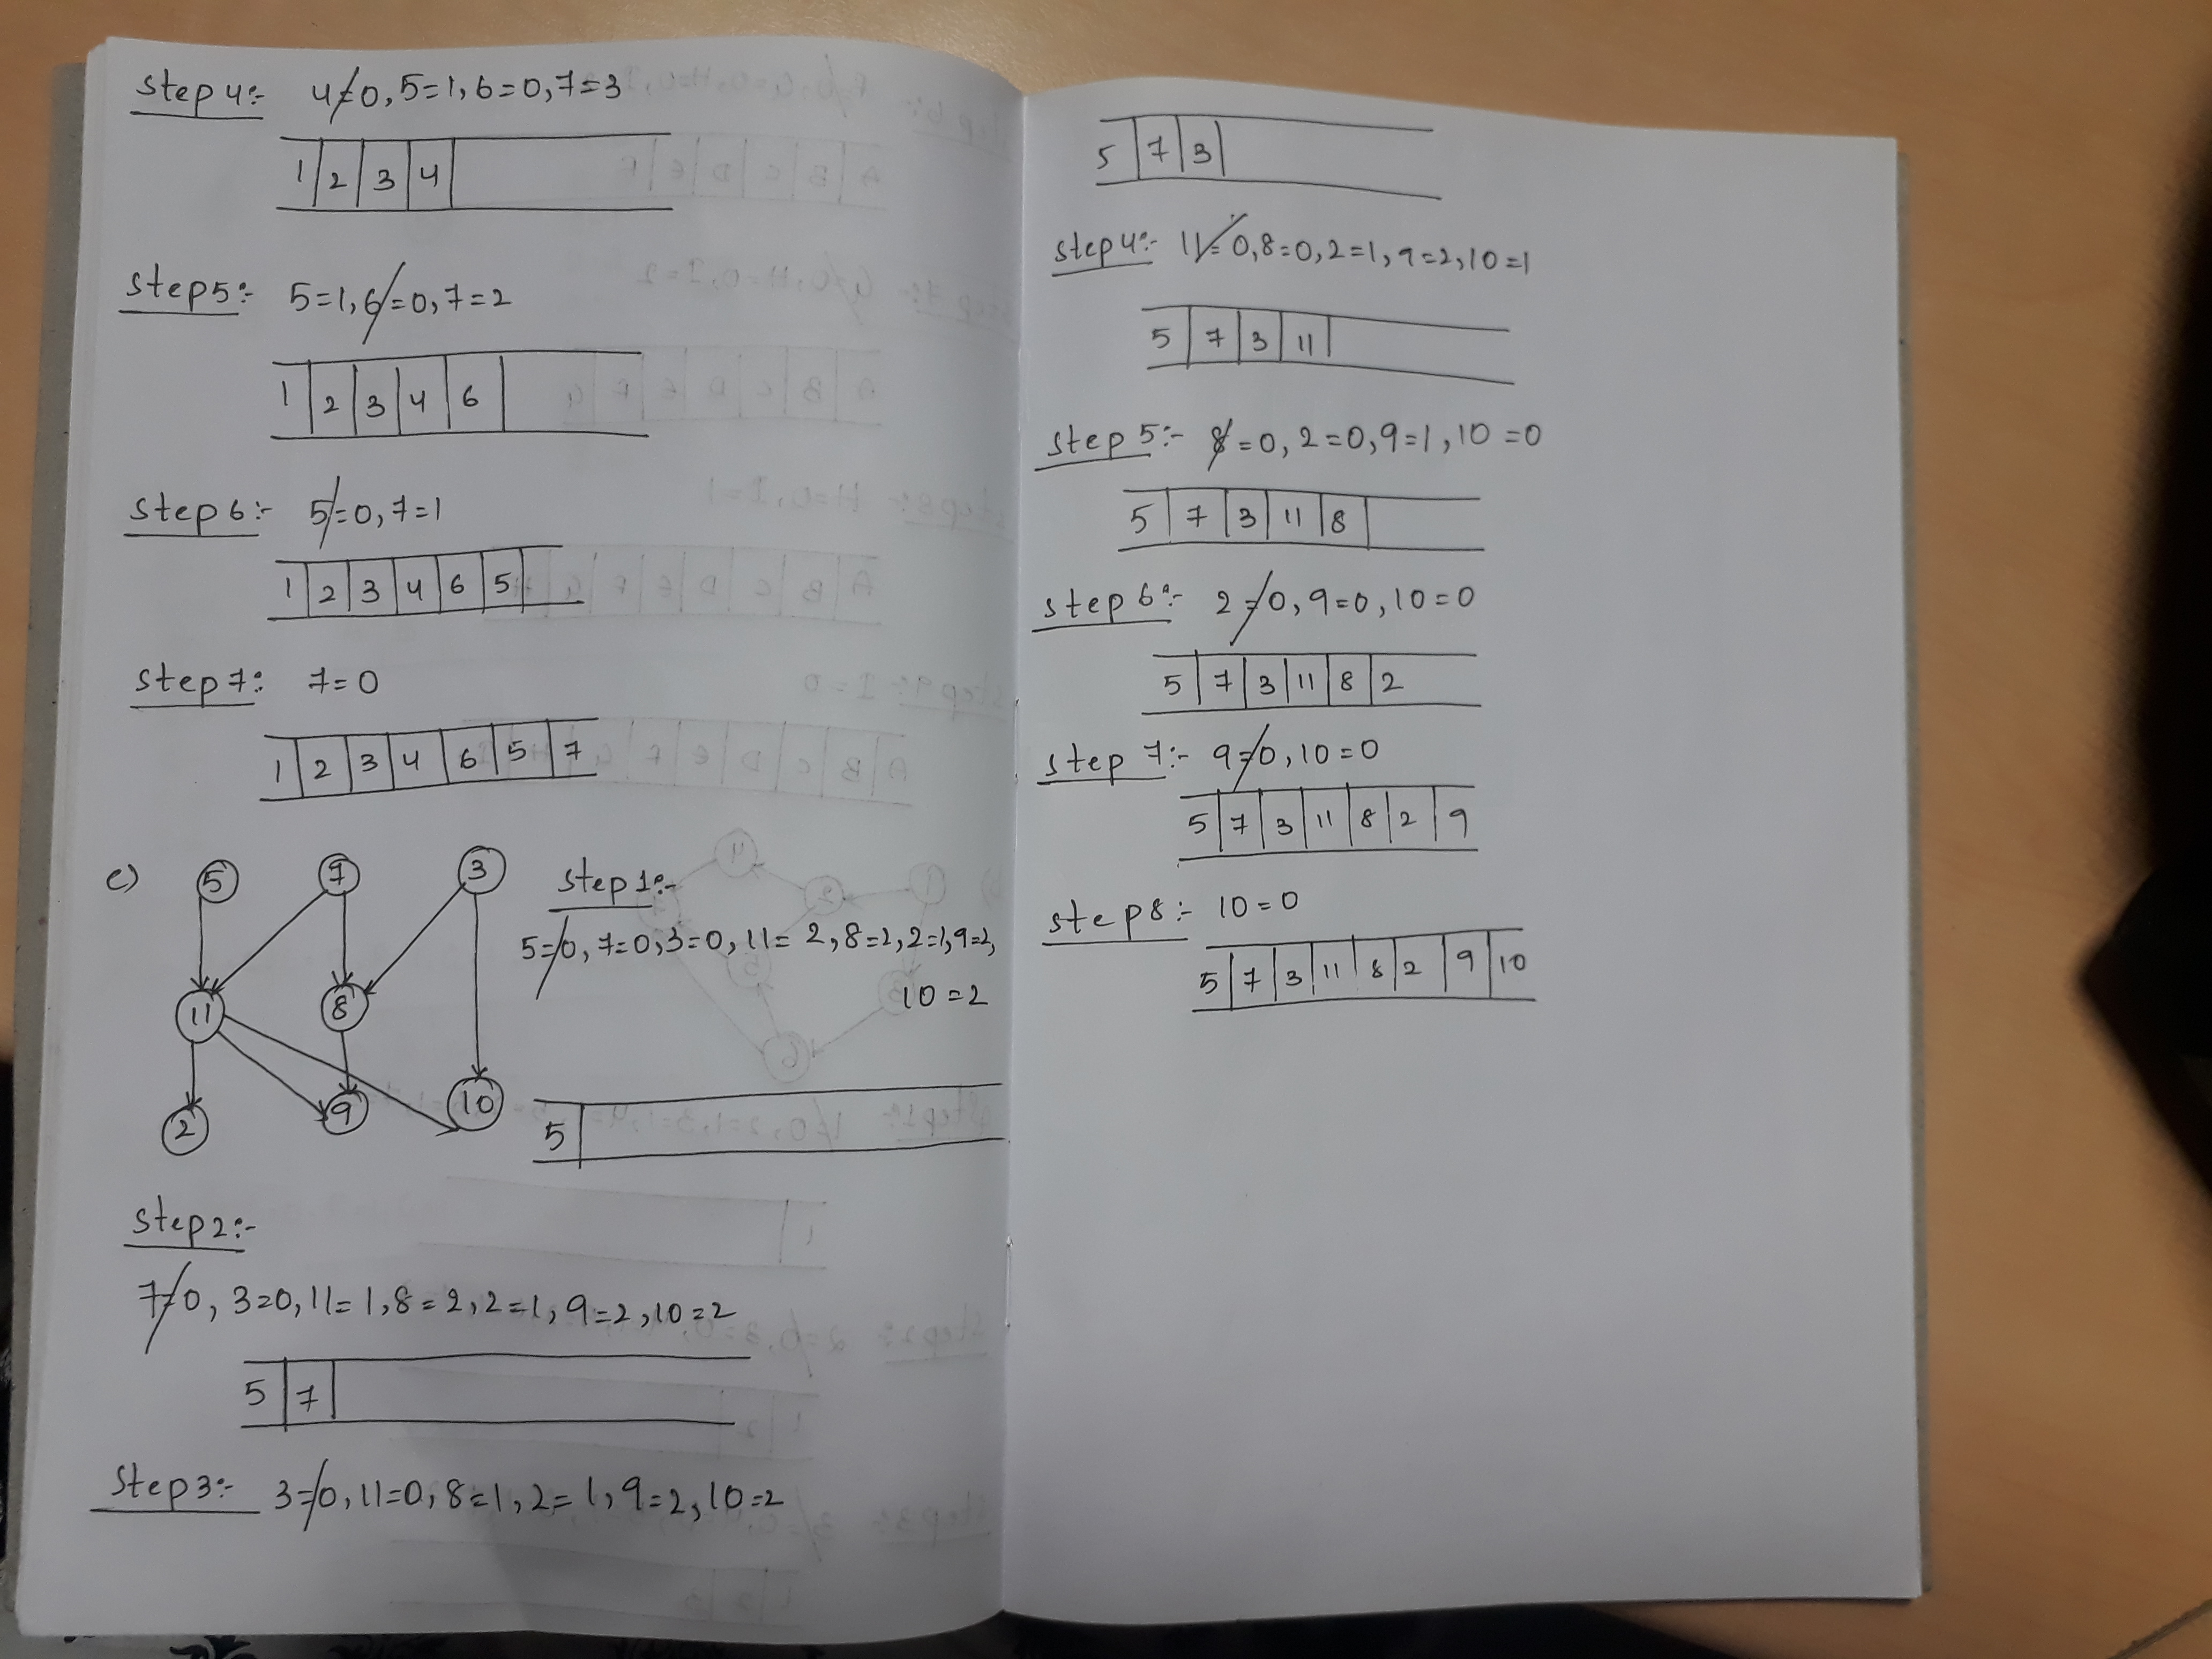 Step 4:- 4=0, 5=1, 6=0, 7=3
1 | 2 | 3 | 4
Step 5:- 5=1, 6=0, 7=2
1 | 2 | 3 | 4 | 6
Step 6:- 5=0, 7=1
1 | 2 | 3 | 4 | 6 | 5
Step 7:- 7=0
1 | 2 | 3 | 4 | 6 | 5 | 7
c)
5 7 3
11 8
2 9 10
Step 1:-
5=0, 7=0, 3=0, 11=2, 8=2, 2=1, 9=2,
10=2
5
Step 2:-
7=0, 3=0, 11=1, 8=2, 2=1, 9=2, 10=2
5 | 7
Step 3:- 3=0, 11=0, 8=1, 2=1, 9=2, 10=2
5 | 7 | 3
Step 4:- 11=0, 8=0, 2=1, 9=2, 10=1
5 | 7 | 3 | 11
Step 5:- 8=0, 2=0, 9=1, 10=0
5 | 7 | 3 | 11 | 8
Step 6:- 2=0, 9=0, 10=0
5 | 7 | 3 | 11 | 8 | 2
Step 7:- 9=0, 10=0
5 | 7 | 3 | 11 | 8 | 2 | 9
Step 8:- 10=0
5 | 7 | 3 | 11 | 8 | 2 | 9 | 10